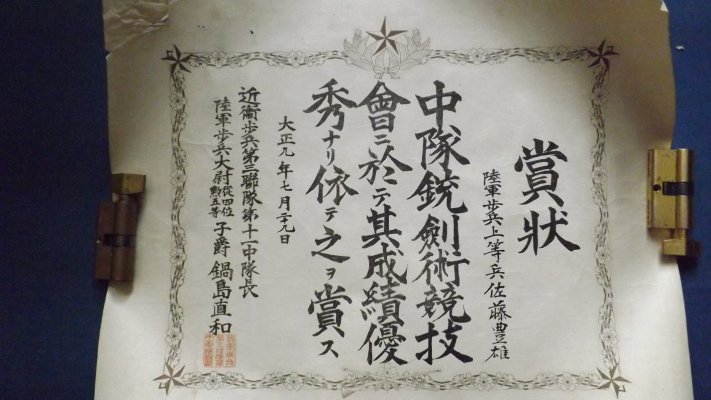 賞狀
陸軍歩兵上等兵佐藤豊雄
中隊銃劍術競技
會ニ於テ其成績優
秀ナリ依テ之ヲ賞ス
大正九年七月廿九日
近衞歩兵第三聯隊第十一中隊長
陸軍歩兵大尉從四位勲五等子爵鍋島直和